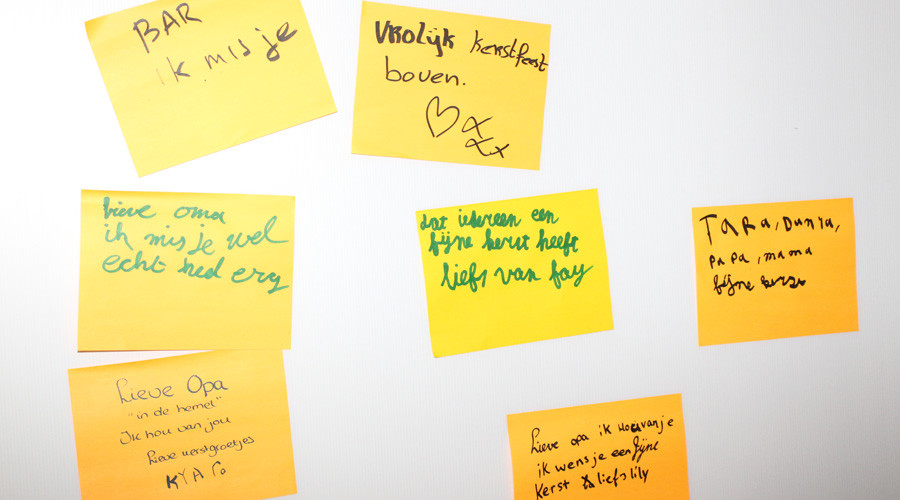 BAR
ik mis je
VROLIJK kerstfeest
boven.
X
Xx
lieve oma
ik mis je wel
echt heel erg
dat iedereen een
fijne kerst heeft
liefs van fay
TARA, Dunia,
PAPA, mama
fijne kerst
Lieve Opa
"in de hemel"
Ik hou van jou
Lieve kerstgroetjes
KYARo
Lieve opa ik Hou van je
ik wens je een fijne
Kerst liefs lily